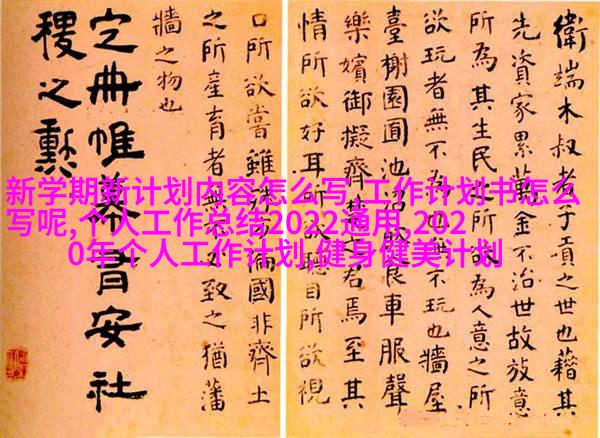 新学期新计划内容怎么写,工作计划书怎么
写呢,个人工作总结2022通用,202
0年个人工作计划,健身健美计划
衛端木叔者子貢之世也藉其
先資家累萬金不治世故放意
所為其生民所欲為人意之所
欲玩者無不為也無不玩也牆屋
臺榭園囿池沼飲食車服聲
樂嬪御擬齊楚之君焉至其
情所欲好耳所欲聽目所欲視
口所欲嘗雖殊方偏國非齊土
之所產育者無不必致之猶藩
牆之物也
定冊帷幕有安社
稷之勳